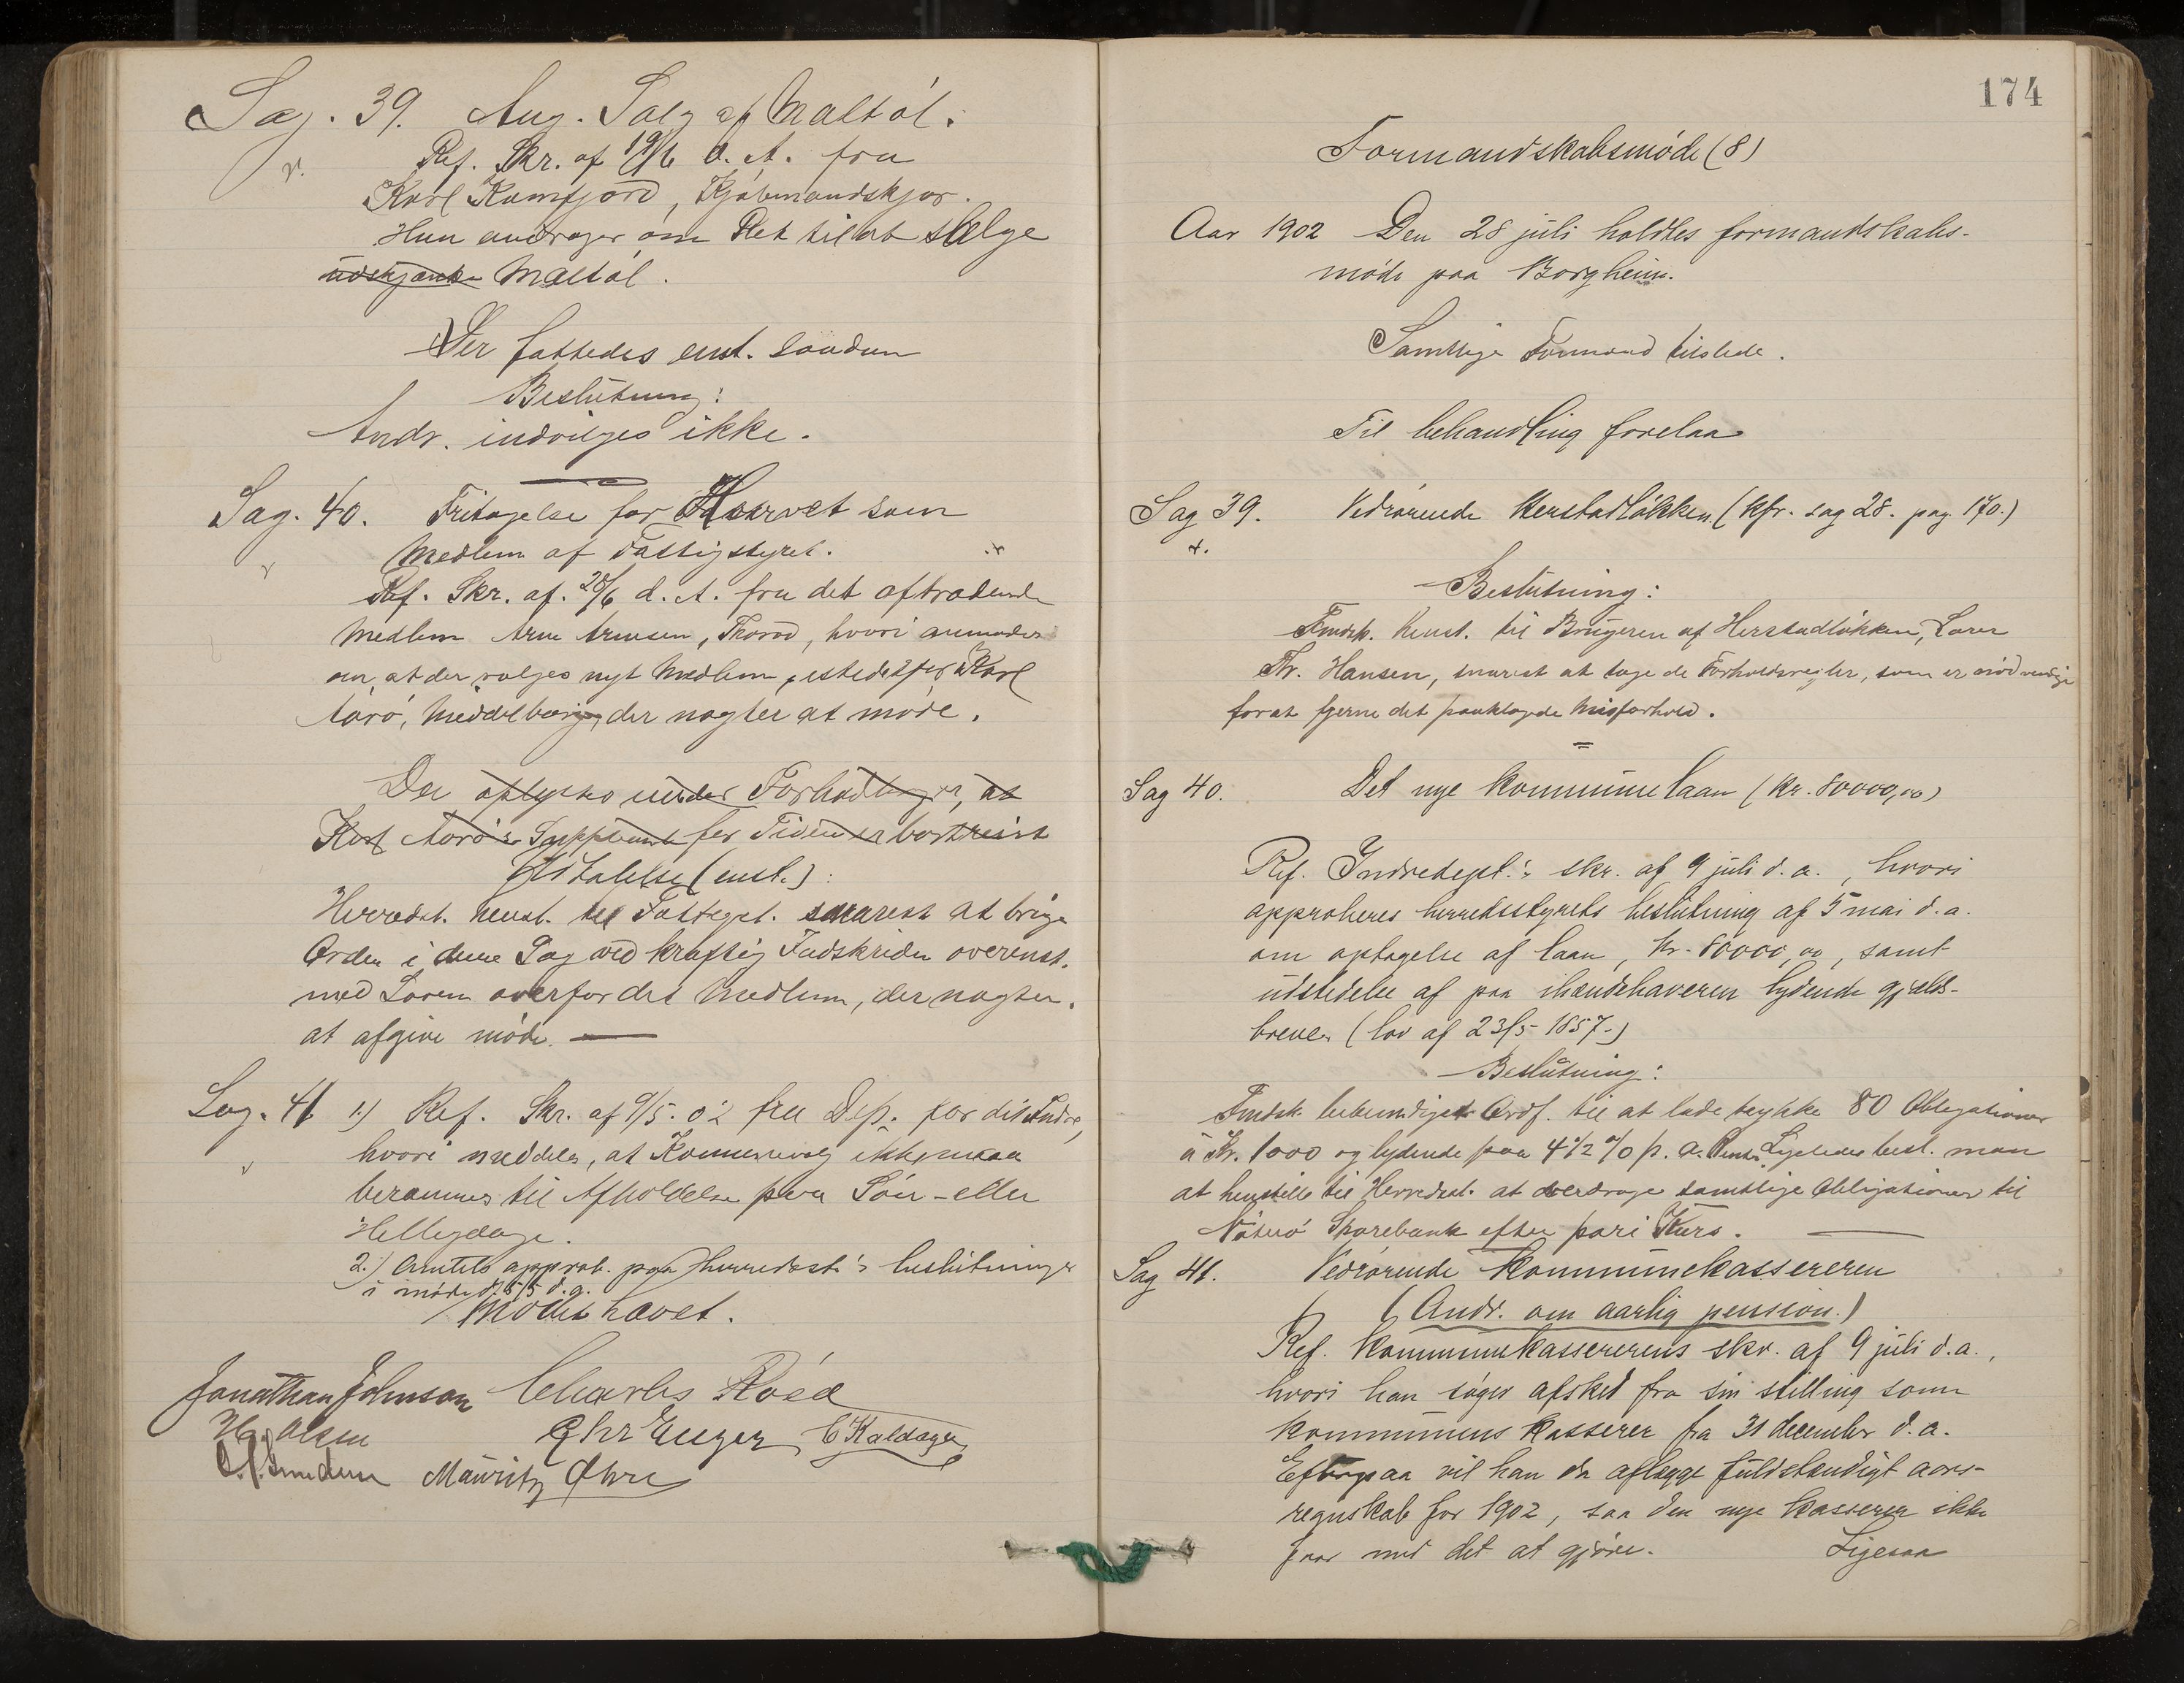 Sag. 39. Ang. Salg af Maltøl.
Ref. Skr. af 19/6 d. A. fra
Karl Kamfjord, Kjøbmandskjær.
Han andrager om Ret til at sælge
udskjænke Maltøl.
Der fattedes enst. saadan
Beslutning:
Andr. indvilges ikke.
Sag. 40. Fritagelse for Hvervet som
Medlem af Fattigstyret.
Ref. Skr. af. 28/6 d. A. fra det aftrædende
Medlem Arne Arnesen, Thorød, hvori anmodes
om, at der vælges nyt Medlem, istedetfor Karl
Aarø, Meddelbørig, der nægter at møde.
Der oplystes under Forhandlingen, at
Karl Aarø's Suppleant for Tiden er bortreist
Udtalelse (enst.):
Herredst. henst. til Fattigst. snarest at bringe
Orden i denne Sag ved kraftig Indskriden overenst.
med Loven overfor det Medlem, der nægter.
at afgive møde.
Sag. 41 1.) Ref. Skr. af 9/5. 02 fra Dep. for det Indre,
hvori meddeles, at Kommunevalg ikke maa
berammes til Afholdelse paa Søn- eller
Helligdage.
2.) Amtets approb. paa herredsst.'s beslutninger
i møde d. 5/5 d. a.
Mødet hævet.
Jonathan Johnson Charles Røed
H. Olsen Chr Unger C Kaldager
Mauritz Øhre
174
Formandskabsmøde (8)
Aar 1902 Den 28 juli holdtes formandskabs-
møde paa Borgheim.
Samtlige Formænd tilstede.
Til behandling forelaa
Sag 39. Vedrørende Herstadløkken. (kfr. sag 28. pag. 170.)
Beslutning:
Fmdsk. henst. til Brugeren af Herstadløkken, Lærer
Fr. Hansen, snarest at tage de Forholdsregler, som er nødvendige
forat fjerne det paaklagede Misforhold.
Sag 40. Det nye kommunelaan (kr. 80000,00)
Ref. Indredept.'s skr. af 9 juli d. a., hvori
approberes herredsstyrets beslutning af 5 mai d. a.
om optagelse af laan, kr. 80000,00, samt
udstedelse af paa ihændehaveren lydende gjælds-
breve (lov af 23/5 1857.)
Beslutning:
Fmdsk bemyndiget Ordf. til at lade trykke 80 Obligationer
à Kr. 1000 og lydende paa 4 1/2 % p. a. Rente. Ligeledes besl. man
at henstille til Herredsst. at overdrage samtlige Obligationer til
Nøterø Sparebank efter pari Kurs.
Sag 41. Vedrørende Kommunekassereren
(Andr. om aarlig pension.)
Ref. Kommunekassererens skr. af 9 juli d. a.,
hvori han søger afsked fra sin stilling som
kommunens kasserer fra 31 december d. a.
Efterpaa vil han da aflægge fuldstændigt aars-
regnskab for 1902, saa den nye kasserer ikke
faar med det at gjøre. Ligesaa